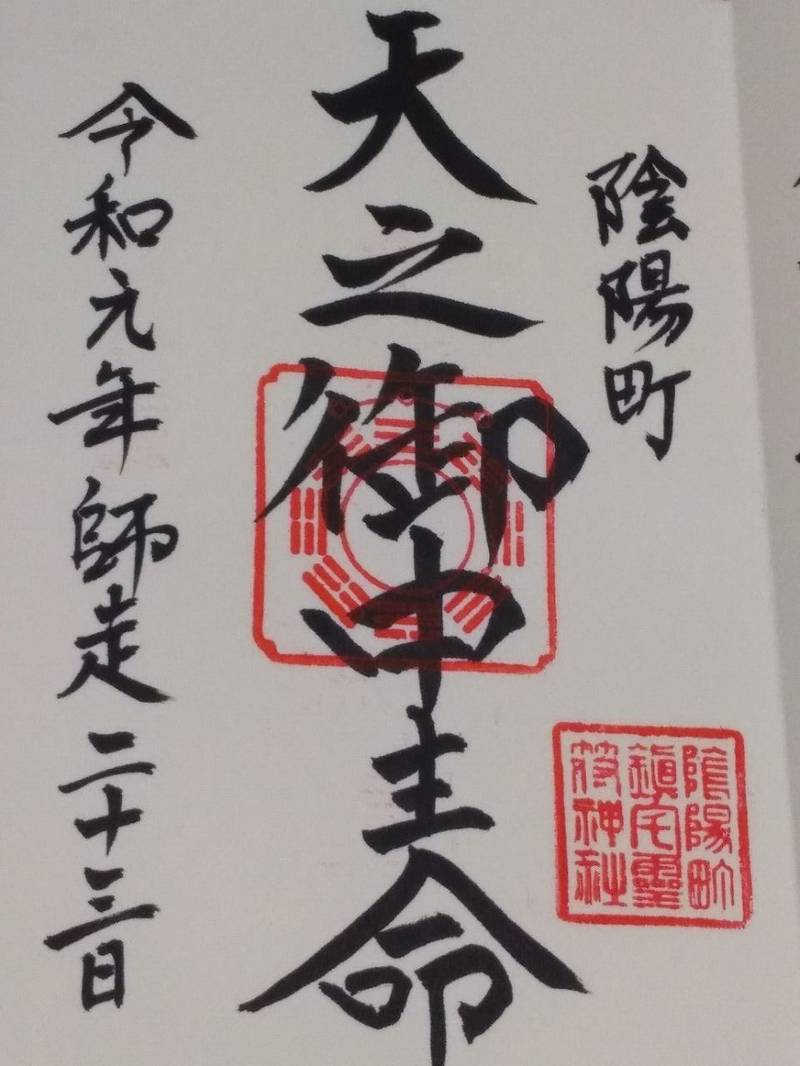 陰陽町
天之御中主命
令和元年師走二十三日
陰陽町
鎮宅霊
符神社